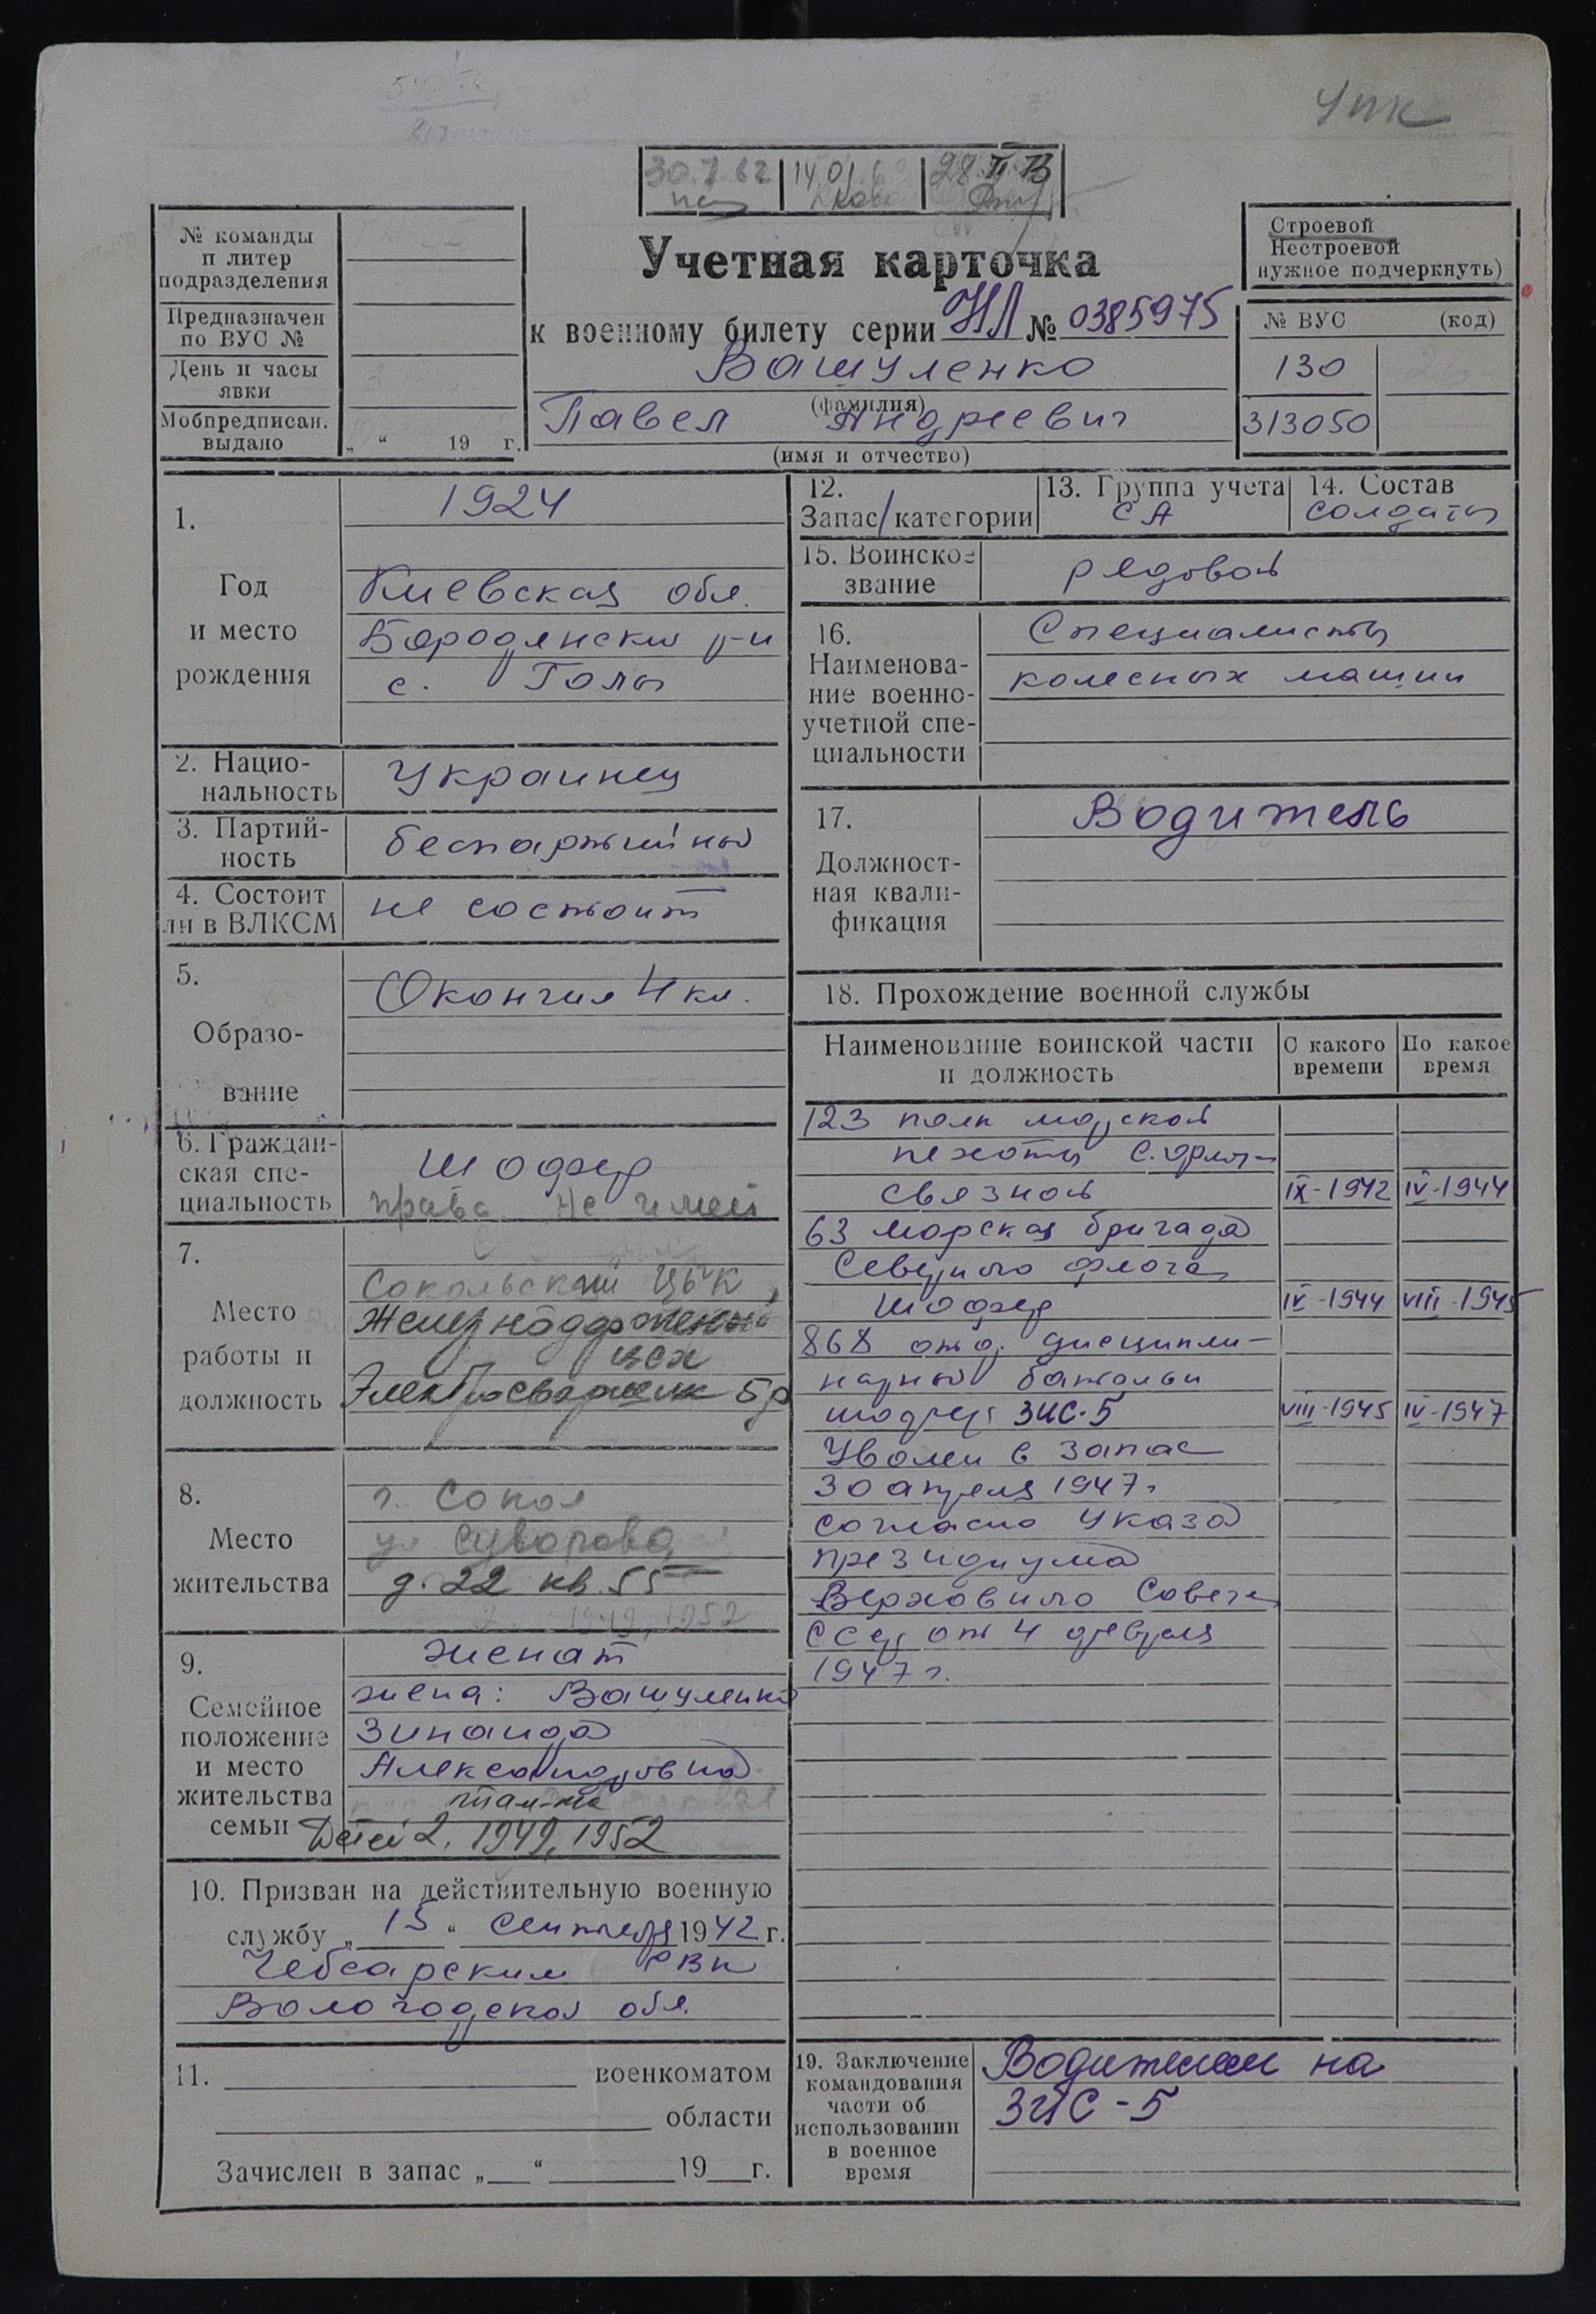 УПК
30.7.62
14.01.6
28.II.73
№ команды
п литер
подразделения
Предназначен
по ВУС №
День и часы
явки
Мобпредписан.
выдано
„ “ 19 г.
Учетная карточка
к военному билету серии НЛ № 0385975
Вашуленко
(фамилия)
Павел Андреевич
(имя и отчество)
Строевой
Нестроевой
нужное подчеркнуть)
№ ВУС (код)
130
313050
1.
Год
и место
рождения
1924
Киевская обл.
Бородянский р-н
с.
2. Нацио-
нальность
Украинец
3. Партий-
ность
беспартийный
4. Состоит
ли в ВЛКСМ
не состоит
5.
Образо-
вание
Окончил 4 кл.
6. Граждан-
ская спе-
циальность
Шофер
права не имеет
7.
Место
работы и
должность
Сокольский ЦБК,
Железнодорожный
цех
Электросварщик 5 р
8.
Место
жительства
г. Сокол
ул Суворова
д. 22 кв. 55
1949, 1952
9.
Семейное
положение
и место
жительства
семьи
женат
жена: Вашуленко
Зинаида
Александровна
там-же
Детей 2, 1949, 1952
10. Призван на действительную военную
службу „ 15 “ сентября 1942 г.
Чебсарским РВК
Вологодской обл.
11. военкоматом
области
Зачислен в запас „ “ 19 г.
12.
Запас/категории
13. Группа учета
СА
14. Состав
солдаты
15. Воинское
звание
рядовой
16.
Наименова-
ние военно-
учетной спе-
циальности
Специалисты
колесных машин
17.
Должност-
ная квали-
фикация
Водитель
18. Прохождение военной службы
Наименование воинской части
и должность
С какого
времени
По какое
время
123 полк морской
пехоты С. флота
связной IX-1942 IV-1944
63 морская бригада
Северного флота
шофер IV-1944 VIII-1945
868 отд. дисципли-
нарный батальон
шофер ЗИС-5 VIII-1945 IV-1947
Уволен в запас
30 апреля 1947 г.
согласно Указа
президиума
Верховного Совета
СССР от 4 февраля
1947 г.
19. Заключение
командования
части об
использовании
в военное
время
Водителем на
ЗИС-5